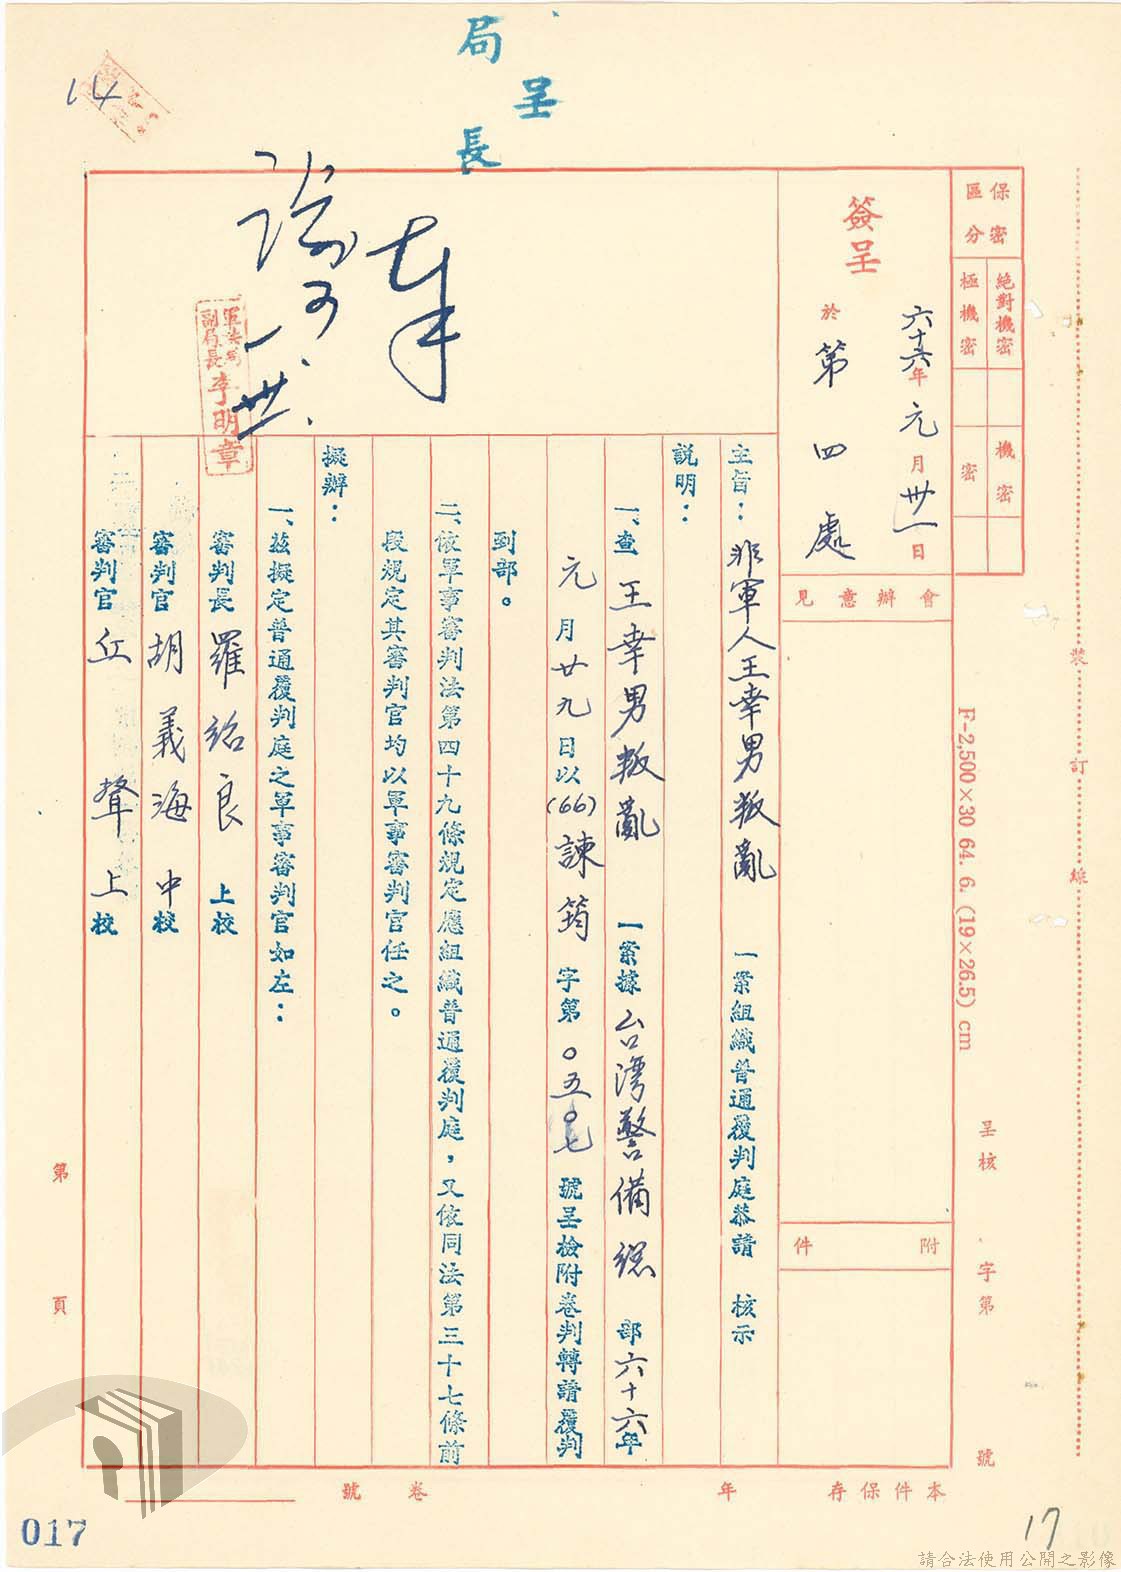 局長
呈
14
保密區分
絕對機密
極機密
機密
密
簽呈
六十六年元月卅一日
於第四處
會辦意見
附件
軍法局副局長李明章
主旨：非軍人王幸男叛亂一案組織普通覆判庭恭請 核示
說明：
一、查王幸男叛亂一案據台灣警備總部六十六年
元月廿九日以(66)諫筠字第○五○七號呈檢附卷判轉請覆判
到部。
二、依軍事審判法第四十九條規定應組織普通覆判庭，又依同法第三十七條前
段規定其審判官均以軍事審判官任之。
擬辦：
一、茲擬定普通覆判庭之軍事審判官如左：
審判長羅紹良上校
審判官胡義海中校
審判官丘聲上校
裝訂線
F-2,500×30 64. 6. (19×26.5) cm
呈核 字第 號
第 頁
本件保存 年 卷 號
017
17
請合法使用公開之影像